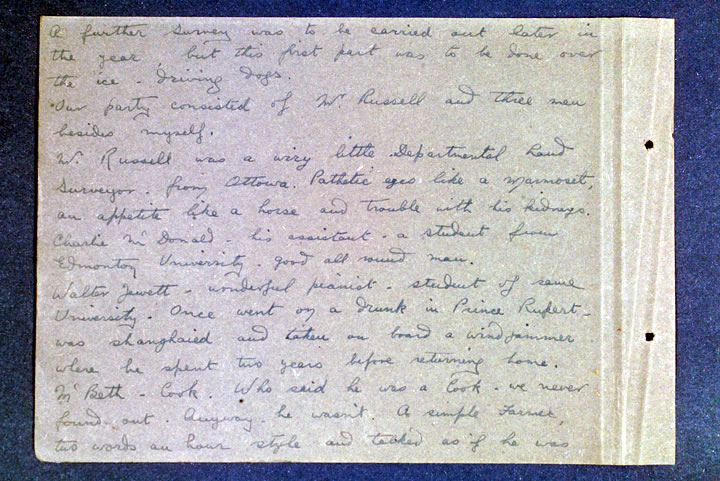 A further Survey was to be carried out later in
the year but this first part was to be done over
the ice - driving dogs.
Our party consisted of Mr. Russell and three men
besides myself.
Mr. Russell was a wiry little Departmental Land
Surveyor. from Ottowa. Pathetic eyes like a marmoset,
an appetite like a horse and trouble with his kidneys.
Charlie McDonald - his assistant - a student from
Edmonton University - good all round man.
Walter Jewett - wonderful pianist - student of same
University. Once went on a drunk in Prince Rupert -
was shanghaied and taken on board a windjammer
where he spent two years before returning home.
McBeth - Cook. Who said he was a Cook - we never
found out. Anyway he wasn't. A simple Farmer,
two words an hour style and talked as if he was